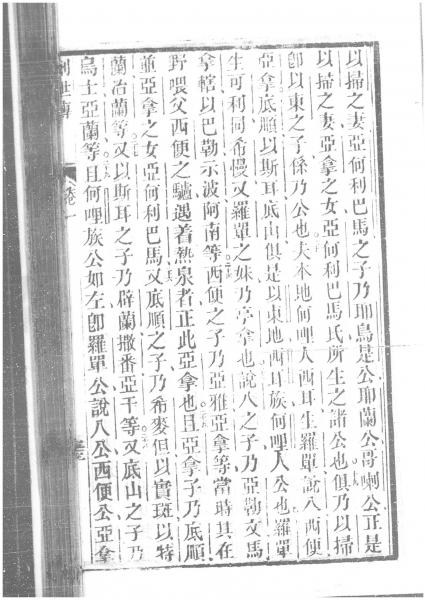 以掃之妻亞何利巴馬之子乃耶烏是公耶蘭公哥喇公正是
以掃之妻亞拿之女亞何利巴馬氏所生之諸公也俱乃以掃
卽以東之子係乃公也夫本地何哩人西耳生羅單說八西便
亞拿底順以斯耳底山俱是以東地西耳族何哩人公也羅單
生可利同希慢又羅單之妹乃亭拿也說八之子乃亞勒文馬
拿轄以巴勒示波阿南等西便之子乃亞雅亞拿等當時其在
野喂父西便之驢遇着熱泉者正此亞拿也且亞拿子乃底順
並亞拿之女亞何利巴馬又底順之子乃希麥但以實斑以特
蘭治蘭等又以斯耳之子乃辟蘭撒番亞干等又底山之子乃
烏士亞蘭等且何哩族公如左卽羅單公說八公西便公亞拿
創世傳
卷一